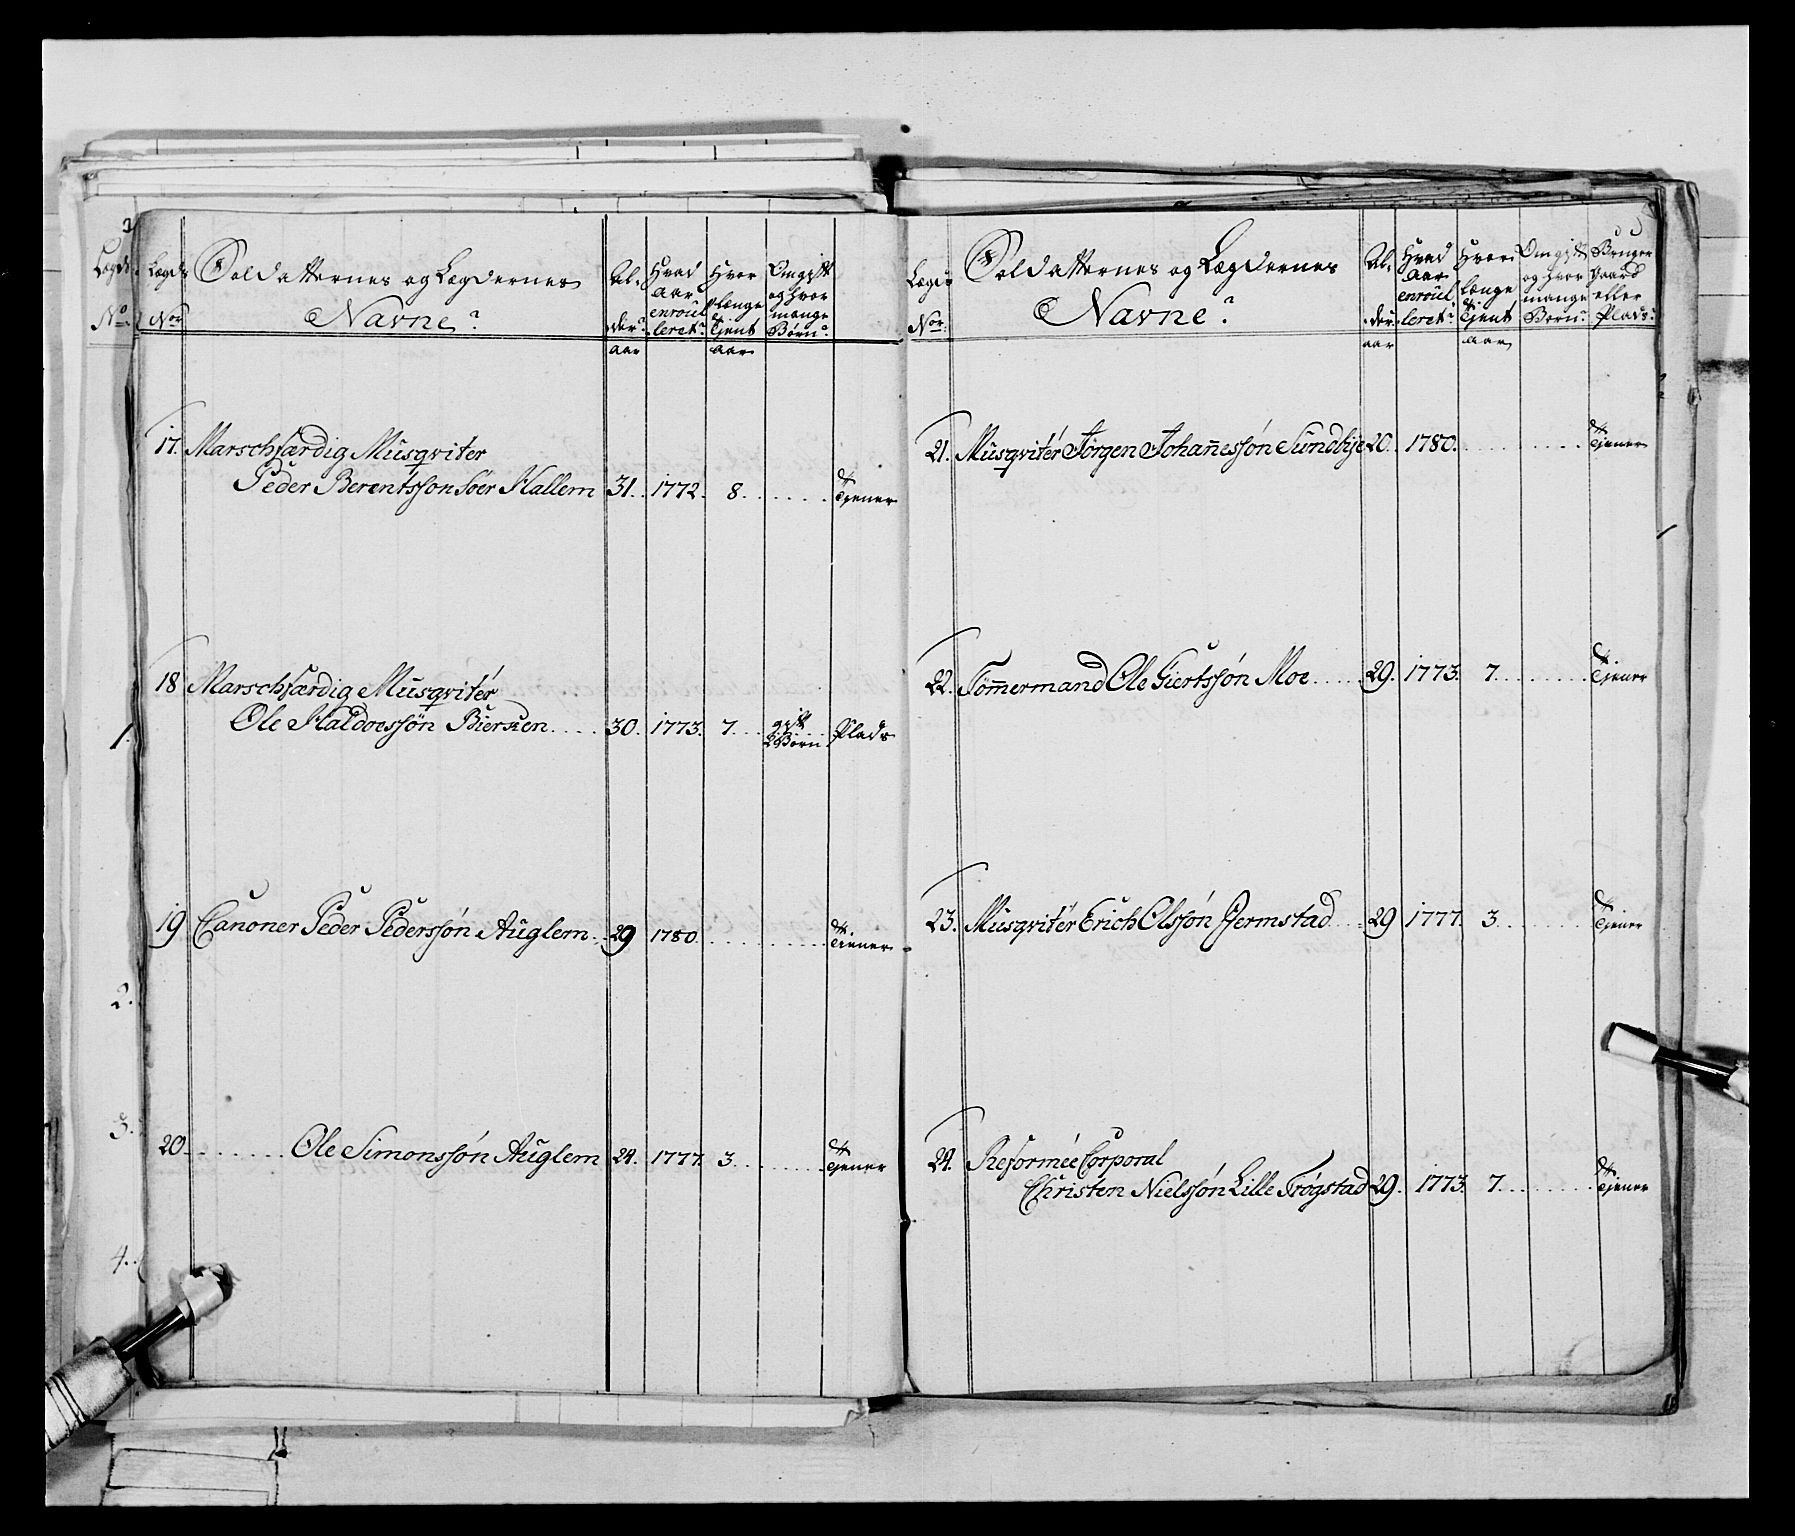 Lægds Nor
Soldatternes og Lægdernes Navne
Al-der aar
Hvad Aar enroulleret
Hvor længe tjent aar
Om gift og hvor mange Børn
17. Marschfærdig Musqvitér
Peder Berentssøn Söer Hallem 31. 1772. 8. tjener
18 Marschfærdig Musqvitér
Ole Haldoessøn Biercken 30. 1773. 7. gift 2 Børn Plads
19 Canoner Peder Pederssøn Auglem 29 1780. tiener
20. Ole Simonssøn Auglem 24. 1777. 3. tjener
1.
2.
3.
4.
Lægds Nor
Soldatternes og Lægdernes Navne
Al-der aar
Hvad Aar enroulleret
Hvor længe tjent aar
Om gift og hvor mange Børn
Bruger gaard eller Plads
21. Musqvitér Jörgen Johannessøn Sundbye 20. 1780. tjener
22. Tömmermand Ole Giertssøn Moe 29. 1773. 7. tjener
23. Musqvitér Erich Olssøn Jermstad 29 1777. 3. tjener
24. Reformée Corporal
Christen Nielssøn Lille Trögstad 29. 1773. 7. tjener